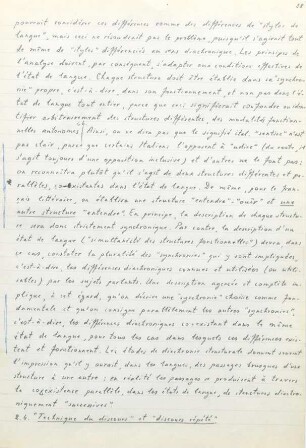 28
pourrait considérer ces différences comme des différences de "styles de
langue", mais ceci ne résoudrait pas le problème, puisqu'il s'agirait tout
de même de "styles" différenciés au sens diachronique. Les principes de
l'analyse doivent, par conséquent, s'adapter aux conditions effectives de
l'état de langue. Chaque structure doit être établie dans sa "synchro-
nie" propre, c'est-à-dire, dans son fonctionnement, et non pas dans l'é-
tat de langue tout entier, parce que ceci signifierait confondre ou iden-
tifier arbitrairement des structures différentes, des modalités fonction-
nelles autonomes. Ainsi, on ne dira pas que le signifié ital. "sentire" n'est
pas clair, parce que certains Italiens l'opposent à "udire" (du reste, il
s'agit toujours d'une opposition inclusive) et d'autres ne le font pas:
on reconnaîtra plutôt qu'il s'agit de deux structures différentes et pa-
rallèles, coexistantes dans l'état de langue. De même, pour le fran-
çais littéraire, on établira une structure "entendre"-"ouïr" et une
autre structure "entendre". En principe, la description de chaque structu-
re sera donc strictement synchronique. Par contre, la description d'un
état de langue ("simultanéité des structures fonctionnelles") devra, dans
ce cas, constater la pluralité des "synchronies" qui y sont impliquées,
c'est-à-dire, les différences diachroniques connues et utilisées (ou utili-
sables) par les sujets parlants. Une description agencée et complète im-
plique, à cet égard, qu'on décrive une synchronie choisie comme fon-
damentale et qu'on consigne parallèlement les autres "synchronies",
c'est-à-dire, les différences diachroniques co-existant dans le même
état de langue, pour tous les cas dans lesquels ces différences exis-
tent et fonctionnent. Les études de diachronie structurale donnent souvent
l'impression qu'il y aurait, dans les langues, des passages brusques d'une
structure à une autre: en réalité les passages se produisent à travers
la coexistence parallèle, dans les états de langue, de structures diachro-
niquement "successives".
2.6. "Technique du discours" et "discours répété"